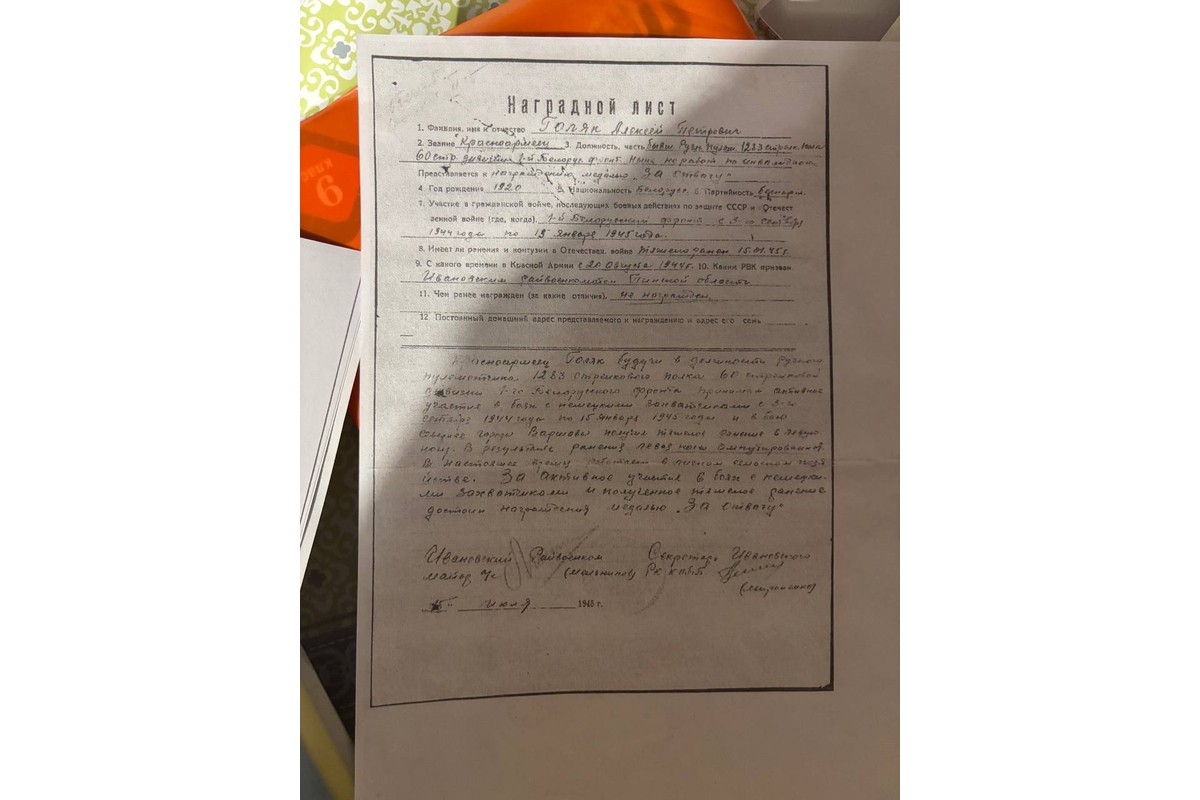 Наградной лист
1. Фамилия, имя и отчество Голяк Алексей Петрович
2. Звание Красноармеец 3. Должность, часть бывш. ручн. пулем. 1283 стрелк. полка
60 стр. дивизии 1-й Белорус. фронт. Ныне не работ. по инвалидност.
Представляется к награждению медалью „За отвагу“
4. Год рождения 1920 5. Национальность Белорус. 6. Партийность беспарт.
7. Участие в гражданской войне, последующих боевых действиях по защите СССР и Отечест
венной войне (где, когда). 1-й Белорусский фронт с 9-го сентября
1944 года по 15 января 1945 года.
8. Имеет ли ранения и контузии в Отечествен. войне тяжело ранен 15.01.45 г.
9. С какого времени в Красной Армии с 20 Августа 1944 г. 10. Каким РВК призван
Ивановским райвоенкоматом Пинской области
11. Чем ранее награжден (за какие отличия). не награжден.
12. Постоянный домашний адрес представляемого к награждению и адрес его семь
Красноармеец Голяк будучи в должности ручного
пулеметчика 1283 стрелкового полка 60 стрелковой
дивизии 1-го Белорусского фронта принимал активное
участие в боях с немецкими захватчиками с 9-го
сентября 1944 года по 15 января 1945 года и в бою
севернее города Варшавы получил тяжелое ранение в левую
ногу. В результате ранения левая нога ампутирована.
В настоящее время работает в личном сельском хозя
йстве. За активное участие в боях с немецки-
ми захватчиками и полученное тяжелое ранение
достоин награждения медалью „За отвагу“
Ивановский Райвоенком Секретарь Ивановского
майор (Мольников) РК КП(б)Б
июля 1945 г.
9
класс